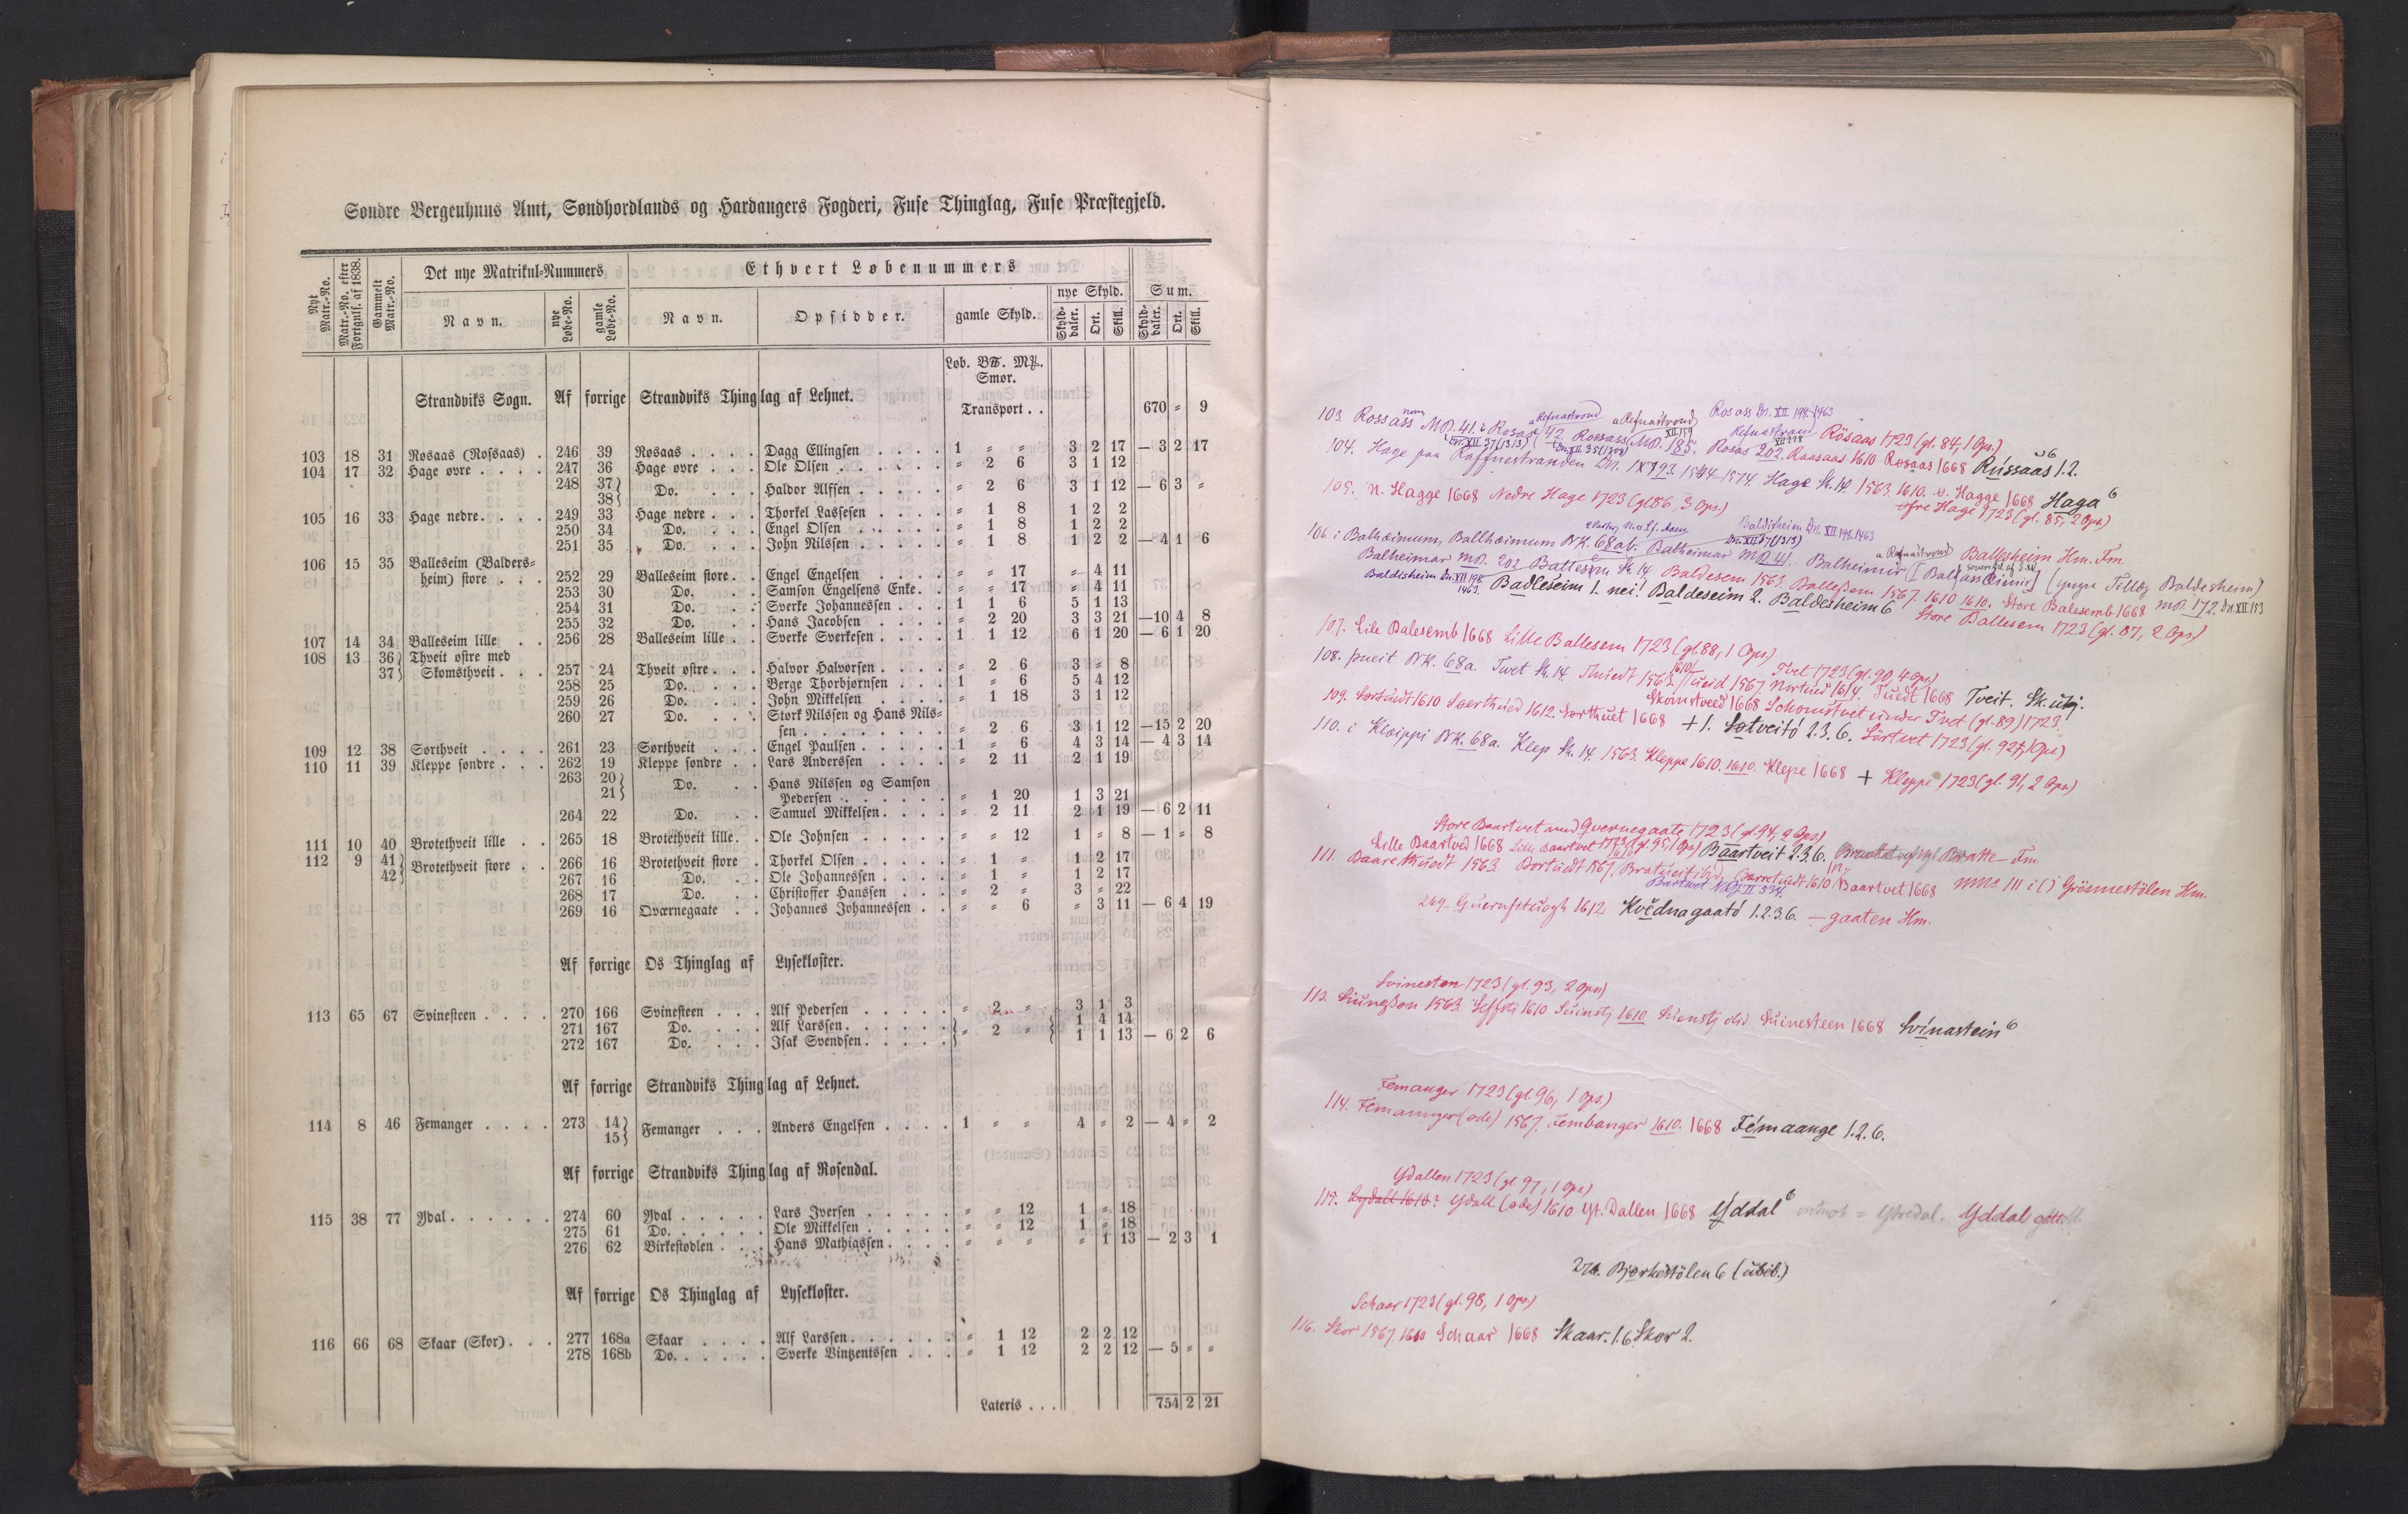 Søndre Bergenhuus Amt, Søndhordlands og Hardangers Fogderi, Fuse Thinglag, Fuse Præstegjeld.
Nyt Matr.-No. Matr.-No. efter Fortgnlf. af 1838. Gammelt Matr.-No. Det nye Matrikul-Nummers Ethvert Løbenummers
Navn. nye Løbe-No. gamle Løbe-No. Navn. Opsidder. gamle Skyld. nye Skyld. Sum.
Skyld-daler. Ort. Skill. Skyld-daler. Ort. Skill.
Løb. B℔. M₰.
Smør.
Strandviks Sogn. Af forrige Strandviks Thinglag af Lehnet. Transport . . 670 " 9
103 18 31 Røsaas (Rossaas) . 246 39 Røsaas . . . . Dagg Ellingsen . . . . 1 " " 3 2 17 — 3 2 17
104 17 32 Hage øvre . . . . 247 36 Hage øvre . . . Ole Olsen . . . . . . " 2 6 3 1 12
248 37} 38} Do. . . . Haldor Alfsen . . . . . " 2 6 3 1 12 — 6 3 "
105 16 33 Hage nedre. . . . 249 33 Hage nedre . . . Thorkel Lassesen . . . . " 1 8 1 2 2
250 34 Do. . . . Engel Olsen . . . . . . " 1 8 1 2 2
251 35 Do. . . . John Nilssen . . . . . " 1 8 1 2 2 — 4 1 6
106 15 35 Balleseim (Balders-
heim) store . . . 252 29 Balleseim store. . Engel Engelsen . . . . " " 17 " 4 11
253 30 Do. . . . Samson Engelsens Enke. . " " 17 " 4 11
254 31 Do. . . . Sverke Johannessen . . . 1 1 6 5 1 13
255 32 Do. . . . Hans Jacobsen . . . . " 2 20 3 3 21 —10 4 8
107 14 34 Balleseim lille . . 256 28 Balleseim lille . . Sverke Sverkesen . . . . 1 1 12 6 1 20 — 6 1 20
108 13 36} Thveit østre med
37} Skomsthveit . . . 257 24 Thveit østre . . . Halvor Halvorsen . . . . " 2 6 3 " 8
258 25 Do. . . . Berge Thorbjørnsen . . . 1 " 6 5 4 12
259 26 Do. . . . John Mikkelsen . . . . " 1 18 3 1 12
260 27 Do. . . . Størk Nilssen og Hans Nils-
sen . . . . . . . . . " 2 6 3 1 12 —15 2 20
109 12 38 Sørthveit . . . . 261 23 Sørthveit . . . Engel Paulsen . . . . . 1 " 6 4 3 14 — 4 3 14
110 11 39 Kleppe søndre . . . 262 19 Kleppe søndre . . Lars Anderssen . . . . " 2 11 2 1 19
263 20} 21} Do. . . Hans Nilssen og Samson
Pedersen . . . . . . . " 1 20 1 3 21
264 22 Do. . . Samuel Mikkelsen . . . . " 2 11 2 1 19 — 6 2 11
111 10 40 Brotethveit lille . . 265 18 Brotethveit lille . . Ole Johnsen . . . . . " " 12 1 " 8 — 1 " 8
112 9 41} 42} Brotethveit store . . 266 16 Brotethveit store . Thorkel Olsen . . . . . " 1 " 1 2 17
267 16 Do. . . Ole Johannessen . . . . " 1 " 1 2 17
268 17 Do. . . Christoffer Hanssen . . . " 2 " 3 " 22
269 16 Qværnegaate . . Johannes Johannessen . . " " 6 " 3 11 — 6 4 19
Af forrige Os Thinglag af Lysekloster.
113 65 67 Svinesteen . . . . 270 166 Svinesteen . . . Alf Pedersen . . . . . " 2 " 3 1 3
271 167 Do. . . . Alf Larssen . . . . . } " 2 " { 1 4 14
272 167 Do. . . . Isak Svendsen . . . . } 1 1 13 — 6 2 6
Af forrige Strandviks Thinglag af Lehnet.
114 8 46 Femanger . . . . 273 14} 15} Femanger . . . Anders Engelsen . . . . 1 " " 4 " 2 — 4 " 2
Af forrige Strandviks Thinglag af Rosendal.
115 38 77 Ydal . . . . . . 274 60 Ydal . . . . . Lars Iversen . . . . . " " 12 1 " 18
275 61 Do. . . . . . Ole Mikkelsen . . . . . " " 12 1 " 18
276 62 Birkestødlen . . . Hans Mathiassen . . . . " " " " 1 13 — 2 3 1
Af forrige Os Thinglag af Lysekloster.
116 66 68 Skaar (Skor) . . . 277 168a Skaar . . . . Alf Larssen . . . . . . " 1 12 2 2 12
278 168b Do. . . . . . Sverke Vintzentssen . . . " 1 12 2 2 12 — 5 " "
Lateris . . . 754 2 21
Rosass Dn. XII 198. 1463
103. Rossass MD. 41. i Rosase 42. Rossass MD. 185. Rosas 202. Raasaas 1610 Rosaas 1668 Rösaas 1723 (gl. 84, 1 Ops.) Rússaas 1.2.
104. Hage paa Raffnestranden Dn. 1574. Hage St. 14. 1563. 1610. ö. Hagge 1668 Haga 6
öfre Hage 1723 (gl. 85, 2 Ops)
105. n. Hagge 1668 Nedre Hage 1723 (gl 86, 3 Ops.)
Baldisheim Dn. XII 198. 1463
106. i Balhæimum, Ballhæimum BK. 68ab. Balheimar MD 41. Balheimir Ballesheim Hm. Fm.
Balheimar MD. 202 Battesem St. 14 Baldesem 1563. Ballessem 1567. 1610 1610. Store Balesemb 1668 MD. 172.
Baldisheim Dn. XII 198 1463. Badleseim 1. nei! Baldeseim 2. Baldesheim 6 Store Ballesem 1723 (gl. 87, 2 Ops)
107. Lile Balesemb 1668 Lille Ballesem 1723 (gl. 88, 1 Ops)
108. þueit BK. 68a. Tvet St. 14. Thuedt 1563. Tueid 1567. 1614. Tuedt 1668 Tvet 1723 (gl. 90, 4 Ops) Tveit.
Skomstveed 1668 Schomstvet under Tvet (gl. 89) 1723.
109. Sortuedt 1610 Soerthued 1612. Sorthuet 1668 + 1. Søtveitó 2.3.6. Sörtvet 1723 (gl. 92, 1 Ops)
110. i Klæippi BK. 68a. Klep St. 14. 1563. Kleppe 1610. 1610. Klepe 1668 + Kleppe 1723 (gl. 91, 2 Ops)
Store Baartvet med Qvernegaate 1723 (gl. 94,
Lille Baartvod 1668 Lille Baartvet 1723 (gl. 95, 1 Ops) Baartveit 2.3.6. Bratte- Fm.
111. Baarethuedt 1563. Bortuedt 1567. Baartvet 1668 111 i () Grönnestölen Hm.
269. 1612 Kvědnagaató 1.2.3.6. —gaaten Hm.
Svinesten 1723 (gl. 93, 2 Ops)
113. 1563. 1610 1610 Suinesteen 1668 Svínastein 6
Femanger 1723 (gl. 96, 1 Ops.)
114. Femannger (øde) 1567. Fembanger 1610. 1668 Fémaange 1.2.6.
Ydallen 1723 (gl. 97, 1 Ops)
115. Ydall (øde) 1610 Yt. Dallen 1668 Ýddal 6 = Ytredal. Yddal
276. Bjørkestölen 6 (
Schaar 1723 (gl. 98, 1 Ops.)
116. Skor 1567. 1610 Schaar 1668 Skaar. 1.6 Skor 2.